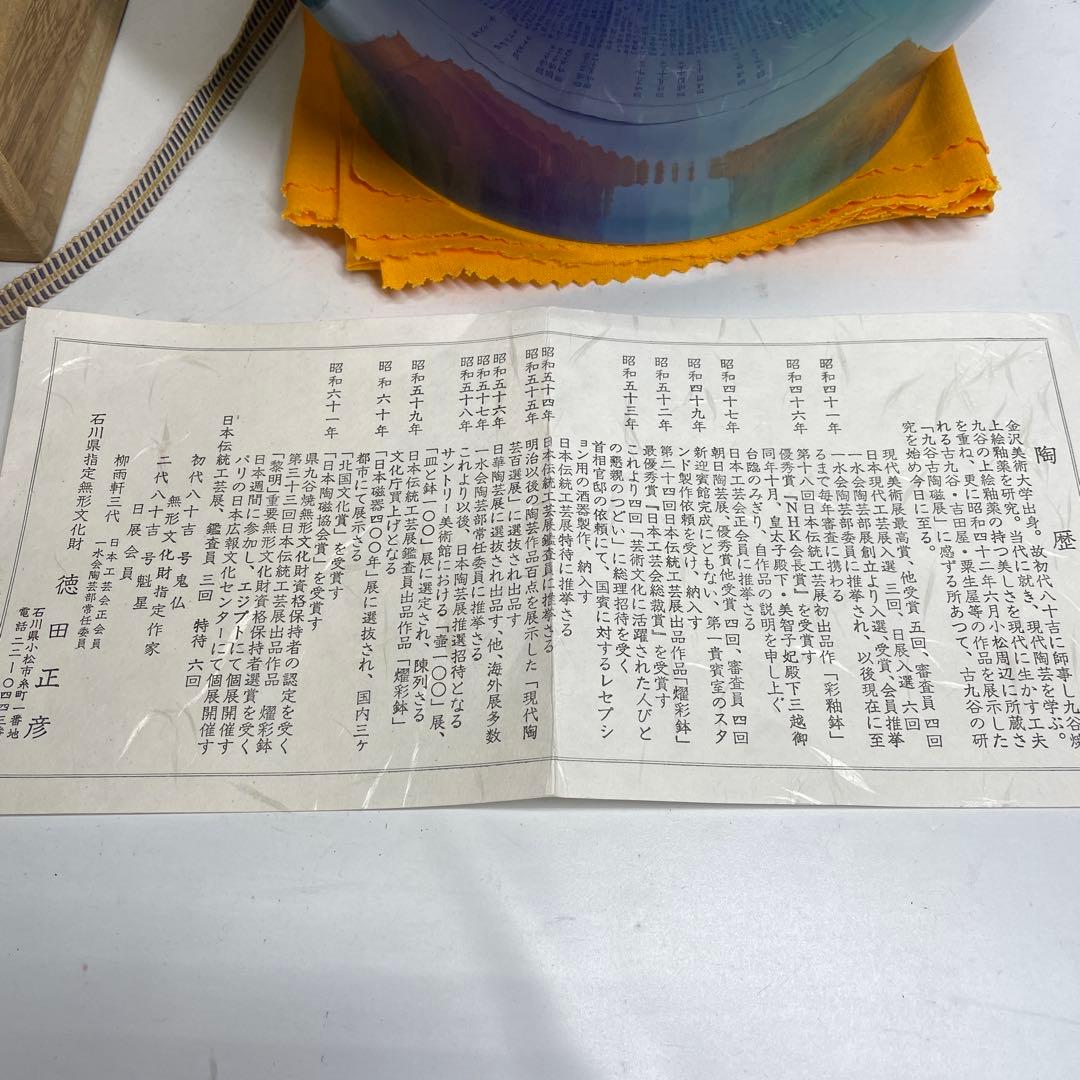 陶歴
金沢美術大学出身。故初代八十吉に師事し九谷焼
上絵釉薬を研究。当代に就き、現代陶芸を学ぶ。
九谷の上絵釉薬の持つ美しさを現代に生かす工夫
を重ね、更に昭和四十二年六月小松周辺に所蔵さ
れる古九谷・吉田屋・粟生屋等の作品を展示した
「九谷古陶磁展」に感ずる所あつて、古九谷の研
究を始め今日に至る。
現代美術展最高賞、他受賞 五回、審査員 四回
日本現代工芸展入選 三回 日展入選 六回
一水会陶芸部展創立より入選、受賞、会員推挙
一水会陶芸部委員に推挙され、以後現在に至
るまで毎年審査に携わる
昭和四十一年
第十八回日本伝統工芸展初出品作 「彩釉鉢」
優秀賞『NHK会長賞』を受賞す
昭和四十六年
同年十月、皇太子殿下・美智子妃殿下三越御
台臨のみぎり、自作品の説明を申し上ぐ
日本工芸会正会員に推挙さる
昭和四十七年
朝日陶芸展、優秀賞他受賞 四回、審査員 四回
新迎賓館完成にともない、第一貴賓室のスタ
ンド製作依頼を受け、納入す
昭和四十九年
第二十四回日本伝統工芸展出品作品「燿彩鉢」
最優秀賞『日本工芸会総裁賞』を受賞す
昭和五十二年
これより四回「芸術文化に活躍された人びと
の懇親のつどい」に総理招待を受く
昭和五十三年
首相官邸の依頼にて、国賓に対するレセプシ
ョン用の酒器製作、納入す
日本伝統工芸展特待に推挙さる
昭和五十四年
日本伝統工芸展鑑査員に推挙さる
昭和五十五年
明治以後の陶芸作品百点を展示した「現代陶
芸百選展」に選抜され出品す
昭和五十六年
日華陶芸展に選抜され出品す、他、海外展多数
昭和五十七年
一水会陶芸部常任委員に推挙さる
昭和五十八年
これより以後、日本陶芸展推選招待となる
サントリー美術館における「壷一〇〇」展、
「皿と鉢一〇〇」展に選定され、陳列さる
昭和五十九年
日本伝統工芸展鑑査員出品作品「燿彩鉢」
文化庁買上げとなる
昭和六十年
「日本磁器四〇〇年」展に選抜され、国内三ヶ
都市にて展示さる
「北国文化賞」を受賞す
昭和六十一年
「日本陶磁協会賞」を受賞す
県九谷焼無形文化財資格保持者の認定を受く
第三十三回日本伝統工芸展出品作品 燿彩鉢
「黎明」重要無形文化財資格保持者選賞を受く
日本週間に参加し、エジプトにて個展開催す
パリの日本広報文化センターにて個展開催す
日本伝統工芸展、 鑑査員 三回 特待 六回
初代八十吉 号鬼仏
無形文化財指定作家
二代八十吉 号魁星
日展会員
柳雨軒三代 日本工芸会正会員
一水会陶芸部常任委員
石川県指定無形文化財
徳田正彦
石川県小松市糸町一番地
電話 二二-〇四四三番